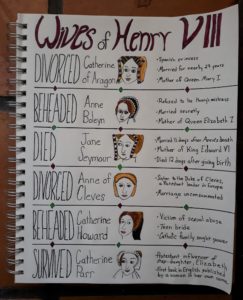 Wives of Henry VIII
DIVORCED Catherine of Aragon
· Spanish princess
· Married for nearly 24 years
· Mother of Queen Mary I
BEHEADED Anne Boleyn
· Related to the
· Married secretly
· Mother of Queen Elizabeth I
DIED Jane Seymour
· Married 11 days after Anne's death
· Mother of King Edward VI
· Died 12 days after giving birth
DIVORCED Anne of Cleves
· Sister to the Duke of Cleves,
a Protestant leader in Europe
· Marriage unconsummated
BEHEADED Catherine Howard
· Victim of sexual abuse
· Teen bride
· Catholic family sought power
SURVIVED Catherine Parr
· Protestant influencer of
step-daughter, Elizabeth
· First book in English published
by a woman of her own name